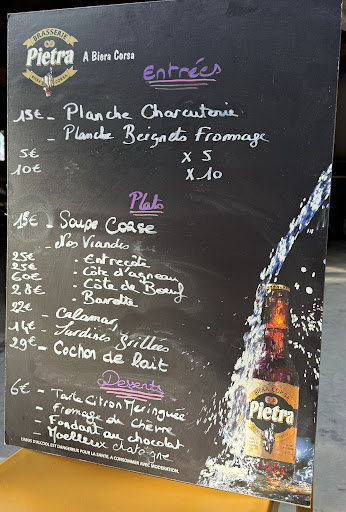 BRASSERIE
Pietra
BIERE CORSE
A Biera Corsa
Entrées
15€ - Planche Charcuterie
- Planche Beignets Fromage
5€ x 5
10€ x 10
Plats
15€ - Soupe Corse
- Nos Viandes
25€ · Entrecôte
25€ · Côte d'agneau
60€ · Côte de Boeuf
28€ · Bavette
22€ - Calamar
14€ - Sardines Grillées
29€ - Cochon de lait
Desserts
6€ - Tarte Citron Meringuée
- Fromage de Chèvre
- Fondant au chocolat
- Moelleux chataîgne
Pietra
L'ABUS D'ALCOOL EST DANGEREUX POUR LA SANTE. A CONSOMMER AVEC MODERATION.